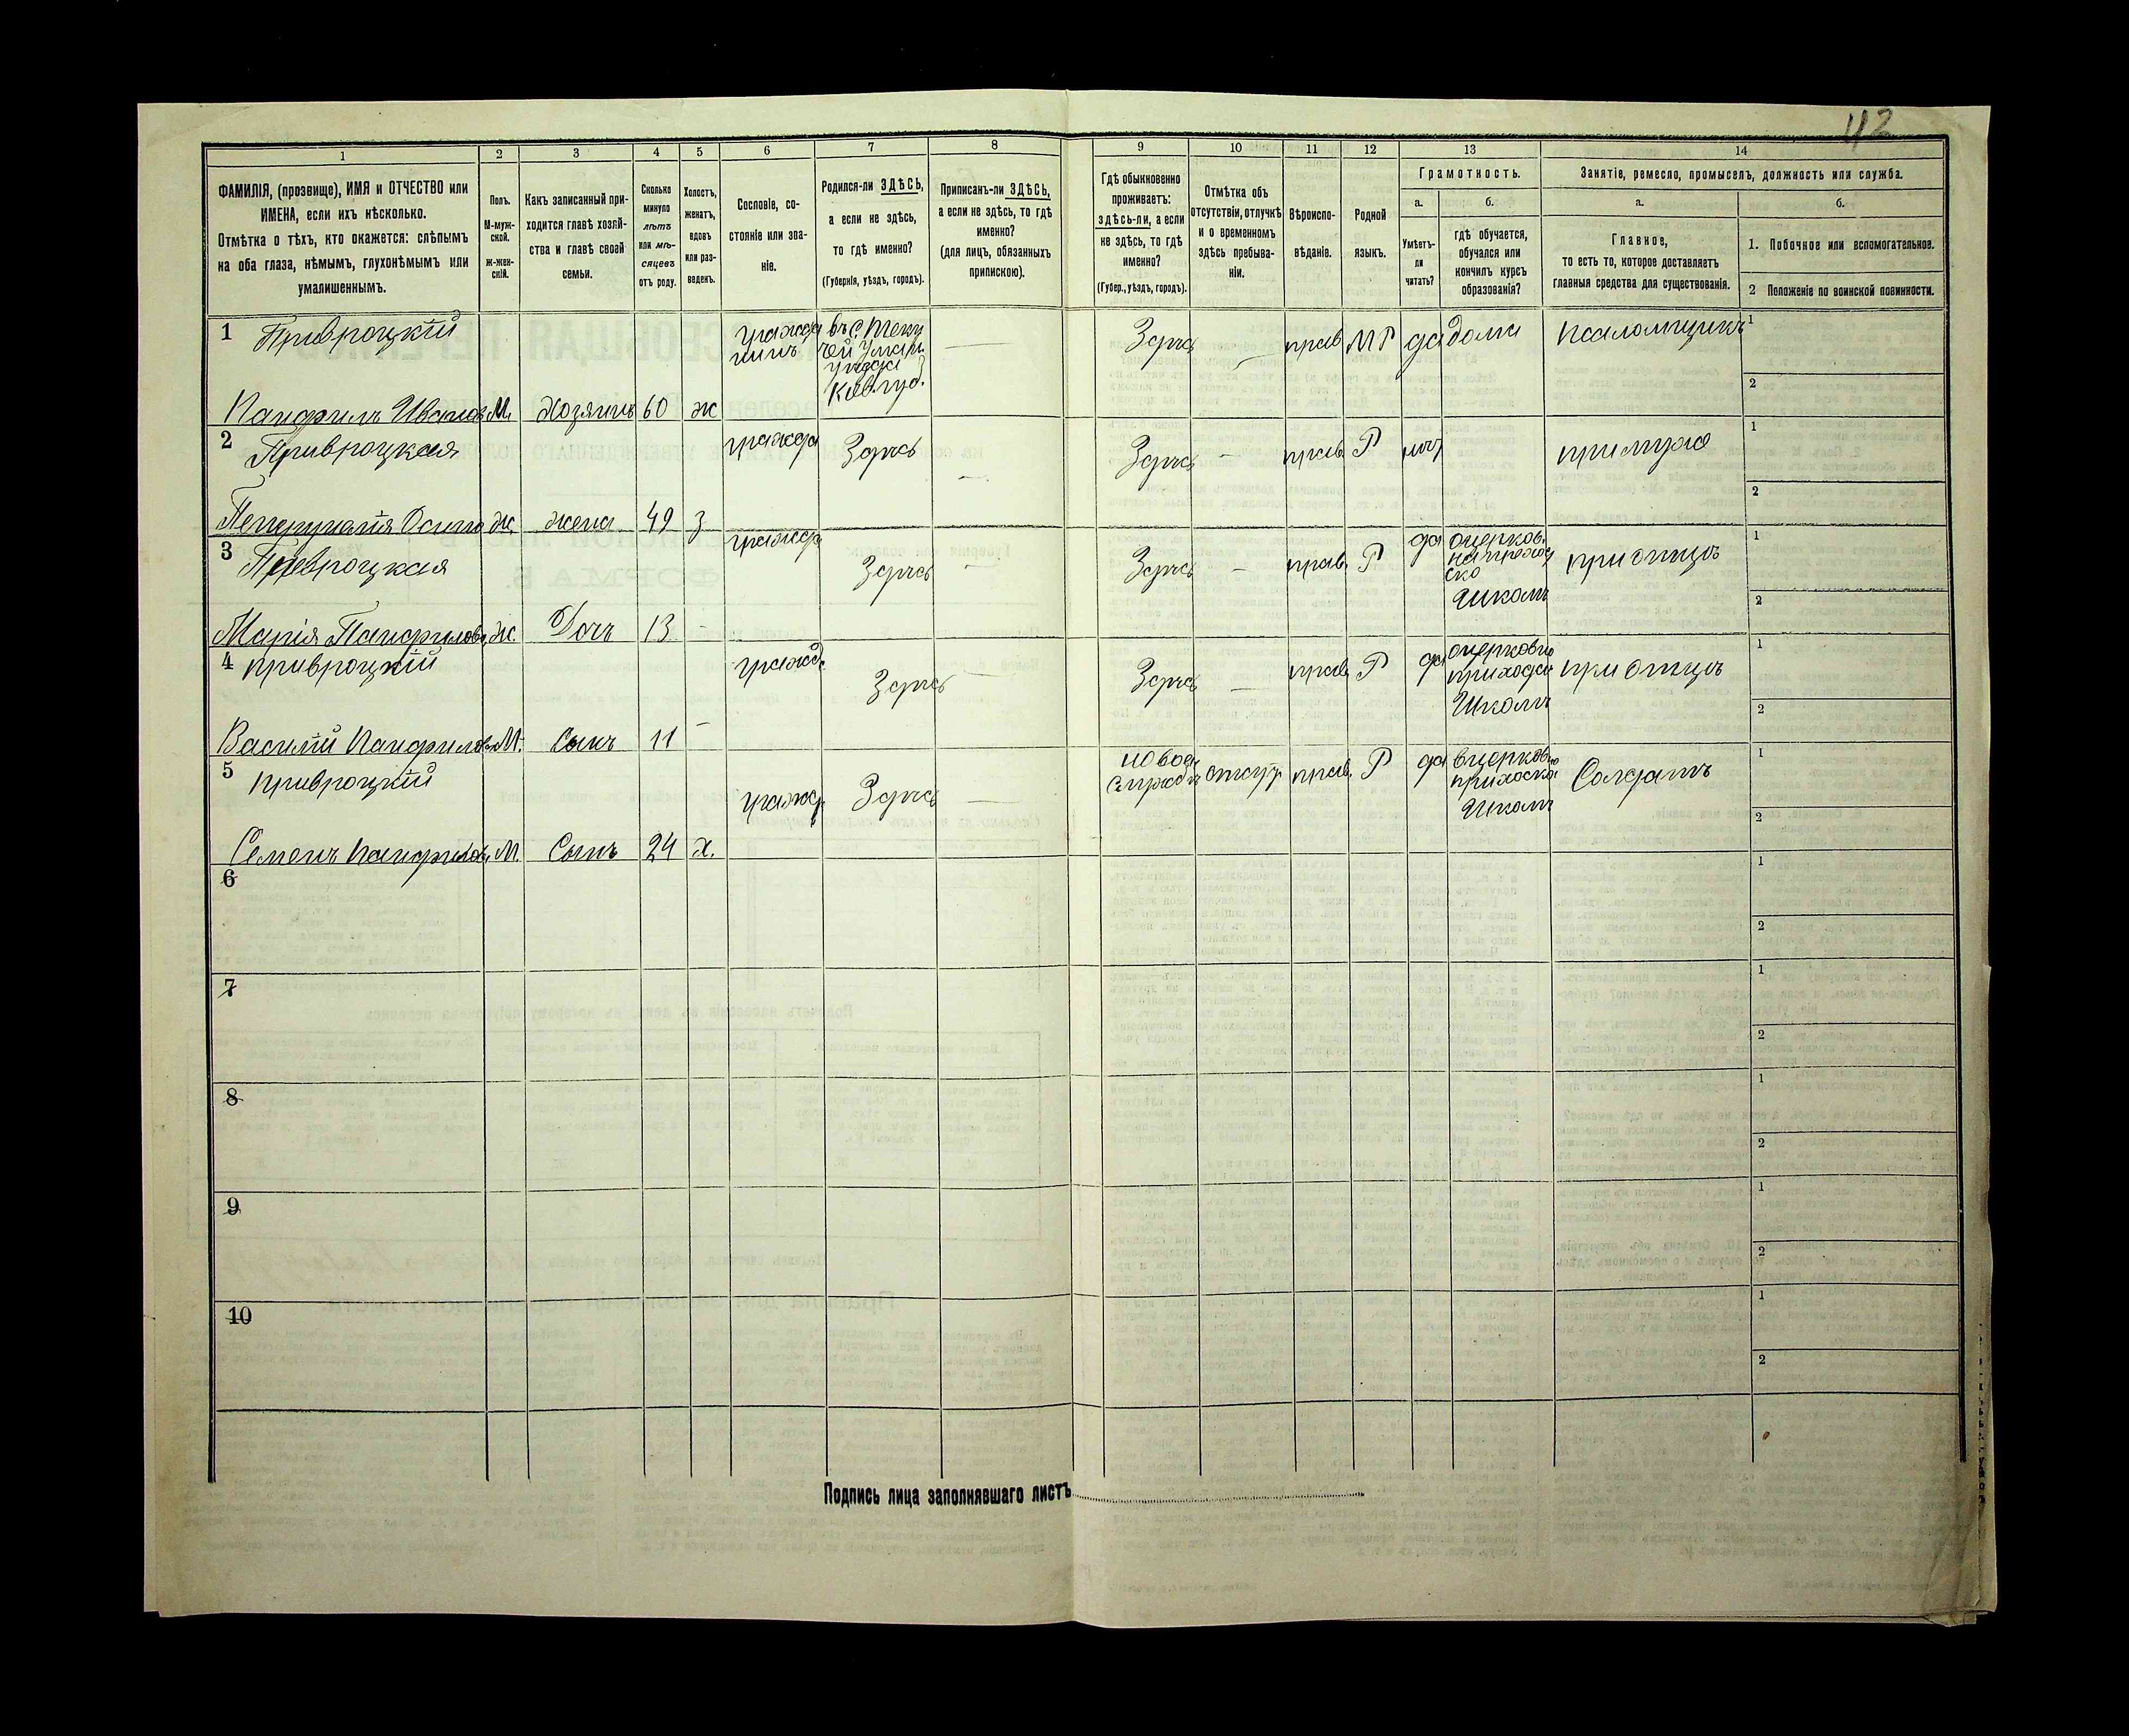 42
1
2
3
4
5
6
7
8
9
10
11
12
13
14
ФАМИЛІЯ, (прозвище), ИМЯ и ОТЧЕСТВО или
ИМЕНА, если ихъ нѣсколько.
Отмѣтка о тѣхъ, кто окажется: слѣпымъ
на оба глаза, нѣмымъ, глухонѣмымъ или
умалишеннымъ.
Полъ.
М-муж-
ской.
ж-жен-
скій.
Какъ записанный при-
ходится главѣ хозяй-
ства и главѣ своей
семьи.
Сколько
минуло
лѣтъ
или мѣ-
сяцевъ
отъ роду.
Холостъ,
женатъ,
вдовъ
или раз-
веденъ.
Сословіе, со-
стояніе или зва-
ніе.
Родился-ли ЗДѢСЬ,
а если не здѣсь,
то гдѣ именно?
(Губернія, уѣздъ, городъ).
Приписанъ-ли ЗДѢСЬ,
а если не здѣсь, то гдѣ
именно?
(для лицъ, обязанныхъ
припискою).
Гдѣ обыкновенно
проживаетъ:
здѣсь-ли, а если
не здѣсь, то гдѣ
именно?
(Губер., уѣздъ, городъ).
Отмѣтка объ
отсутствіи, отлучкѣ
и о временномъ
здѣсь пребыва-
ніи.
Вѣроиспо-
вѣданіе.
Родной
языкъ.
Грамотность.
а.
Умѣетъ-
ли
читать?
б.
гдѣ обучается,
обучался или
кончилъ курсъ
образованія?
Занятіе, ремесло, промыселъ, должность или служба.
а.
Главное,
то есть то, которое доставляетъ
главныя средства для существованія.
б.
1. Побочное или вспомогательное.
2 Положеніе по воинской повинности.
1 Привроцкій
Панфилъ Иванов М. Хозяинъ 60 ж
гражда
нинъ
Здѣсь — прав МР да дома псаломщикъ 1
2
2 Привроцкая
Осипо ж. жена 49 з
гражда Здѣсь —
Здѣсь — прав Р нѣт при мужѣ 1
2
3 Привроцкая
Марія Панфилова ж. Дочь 13 -
гражда Здѣсь —
Здѣсь — прав. Р да
Школѣ
при отцѣ 1
2
4 привроцкій
Василій Панфилов М. Сынъ 11 -
гражд. Здѣсь —
Здѣсь — прав. Р да
Школѣ
при отцѣ 1
2
5 привроцкій
Семенъ Панфилов. М. Сынъ 24 х.
гражд. Здѣсь —
прав. Р да
Школѣ
Солдатъ 1
2
6
1
2
7
1
2
8
1
2
9
1
2
10
1
2
Подпись лица заполнявшаго листъ